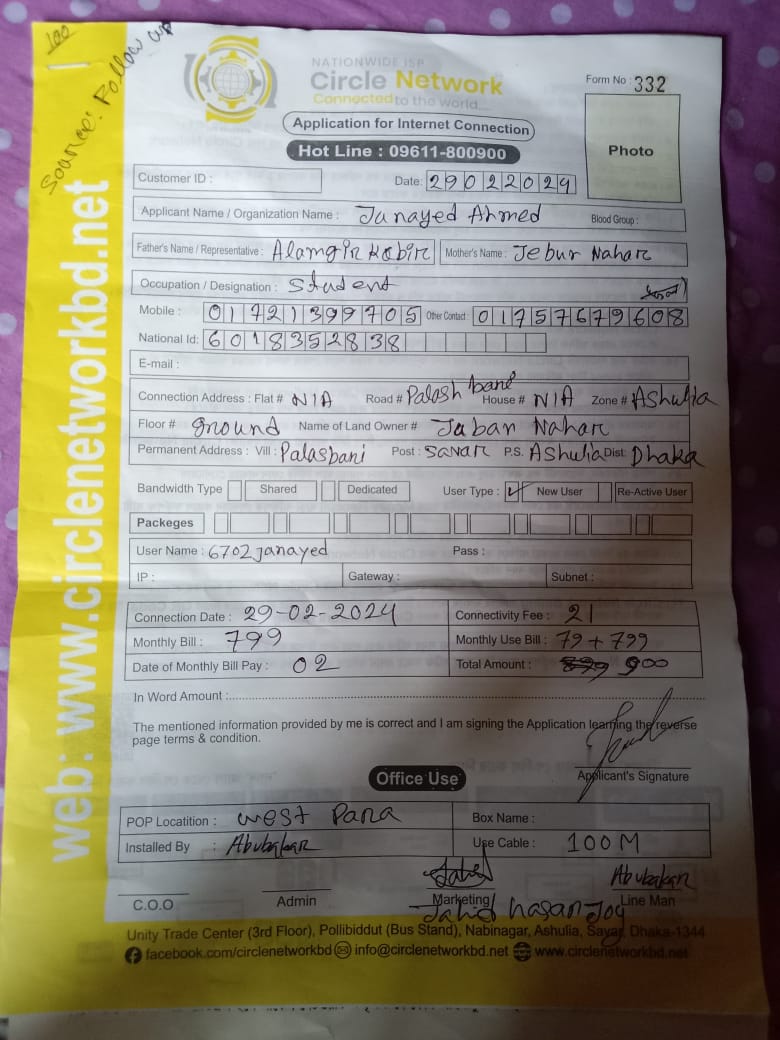 100
Source: Follow up
NATIONWIDE ISP
Circle Network
Connected to the world...
Form No : 332
Application for Internet Connection
Hot Line : 09611-800900
Photo
Customer ID :
Date: 29022024
Applicant Name / Organization Name : Junayed Ahmed Blood Group :
Father's Name / Representative : Alamgir Kabir Mother's Name : Jebur Nahar
Occupation / Designation : Student
Mobile : 01721399705 Other Contact : 01757679608
National Id: 6018352838
E-mail :
Connection Address : Flat # N/A Road # Palash bane House # N/A Zone # Ashulia
Floor # ground Name of Land Owner # Jaban Nahar
Permanent Address : Vill : Palasbani Post : Savar P.S. Ashulia Dist: Dhaka
Bandwidth Type Shared Dedicated User Type : ✓ New User Re-Active User
Packeges
User Name : 6702janayed Pass :
IP : Gateway : Subnet :
Connection Date : 29-02-2024 Connectivity Fee : 21
Monthly Bill : 799 Monthly Use Bill : 79 + 799
Date of Monthly Bill Pay : 02 Total Amount : 900
In Word Amount :
The mentioned information provided by me is correct and I am signing the Application learning the reverse
page terms & condition.
Applicant's Signature
Office Use
POP Locatition : west Para Box Name :
Installed By : Abubakar Use Cable : 100 M
Abubakar
C.O.O Admin Marketing Line Man
Jahid hasan Joy
Unity Trade Center (3rd Floor), Pollibiddut (Bus Stand), Nabinagar, Ashulia, Savar, Dhaka-1344
facebook.com/circlenetworkbd info@circlenetworkbd.net www.circlenetworkbd.net
web: www.circlenetworkbd.net